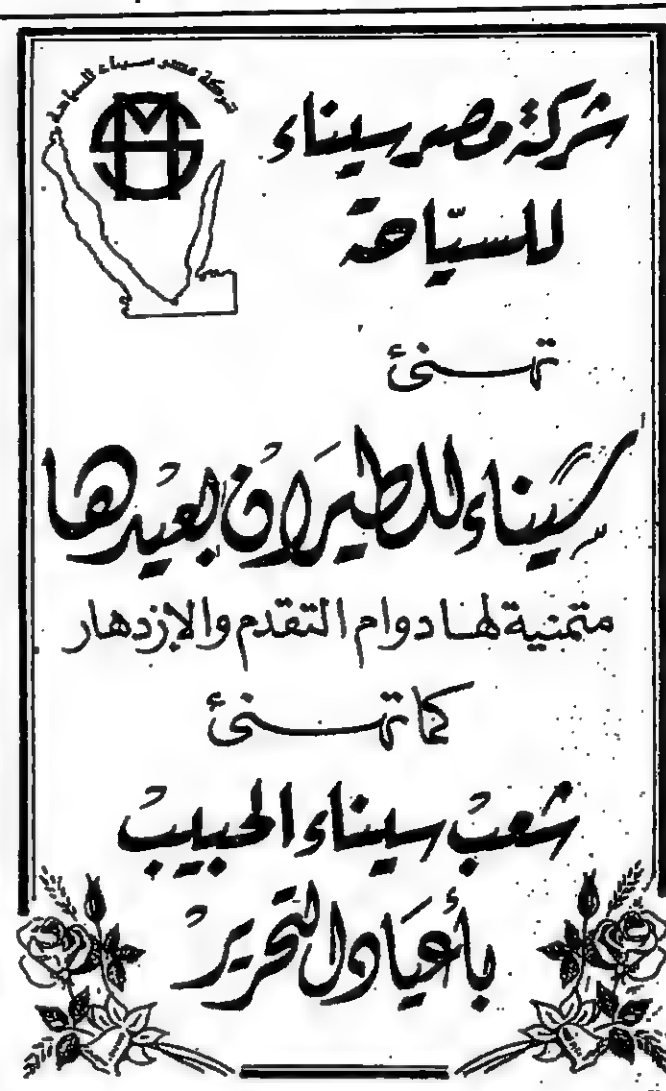 شركة مصر سيناء للسياحة
شركة مصر سيناء
للسيّاحة
تهنئ
سيناء للطيران بعيدها
متمنية لها دوام التقدم والازدهار
كما تهنئ
شعب سيناء الحبيب
بأعياد التحرير